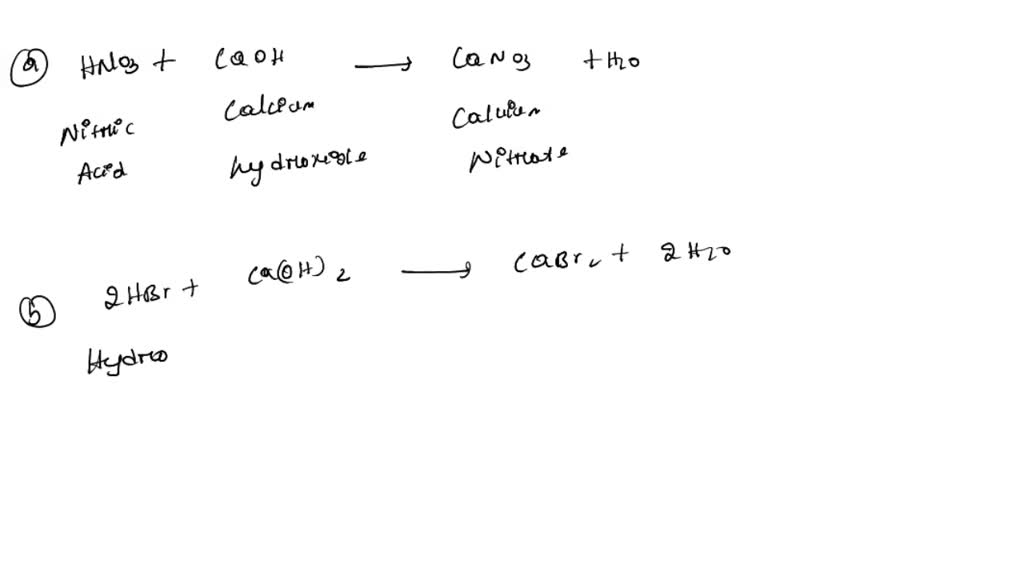 (a) HNO3 + CaOH → CaNO3 + H2O
Nitric Calcium Calcium
Acid hydroxide Nitrate
(b) 2HBr + Ca(OH)2 → CaBr2 + 2H2O
Hydro